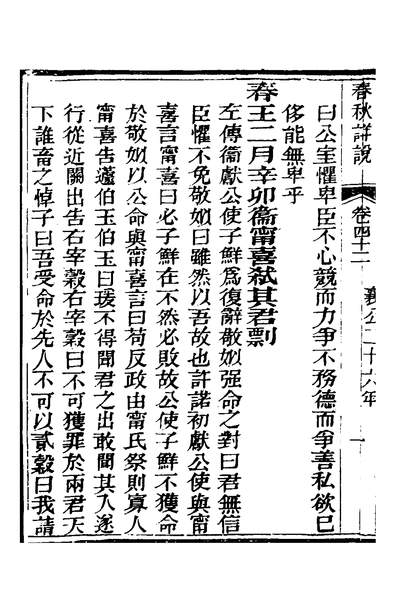 春秋詳說 卷四十二 襄公二十六年 一
曰公室懼卑臣不心競而力爭不務德而爭善私欲已
侈能無卑乎
春王二月辛卯衞甯喜弑其君剽
左傳衞獻公使子鮮爲復辭敬姒强命之對曰君無信
臣懼不免敬姒曰雖然以吾故也許諾初獻公使與甯
喜言甯喜曰必子鮮在不然必敗故公使子鮮不獲命
於敬姒以公命與甯喜言曰苟反政由甯氏祭則寡人
甯喜告蘧伯玉伯玉曰瑗不得聞君之出敢聞其入遂
行從近關出告右宰穀右宰穀曰不可獲罪於兩君天
下誰畜之悼子曰吾受命於先人不可以貳穀曰我請